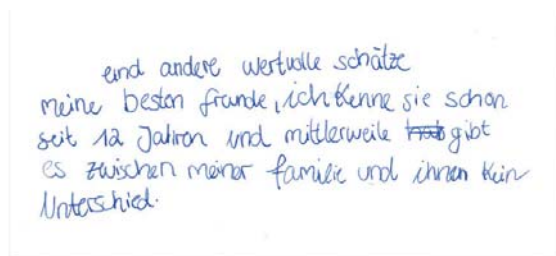 und andere wertvolle schätze
meine besten freunde, ich kenne sie schon
seit 12 Jahren und mittlerweile gibt
es zwischen meiner familie und ihnen kein
Unterschied.